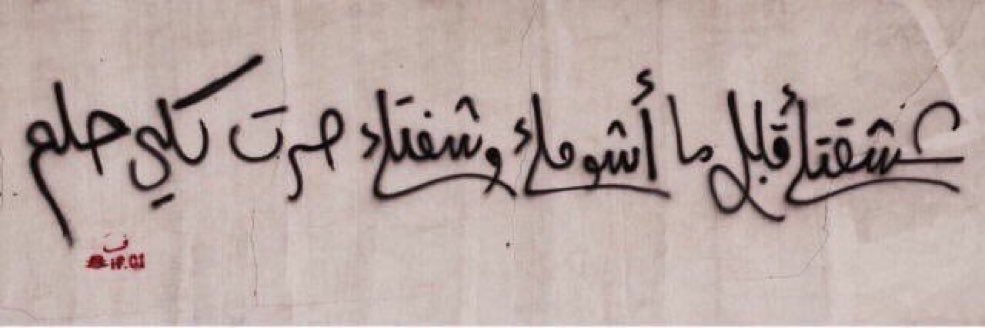 عشقتك قبل ما أشوفك وشفتك صرت كلي حلم
ف